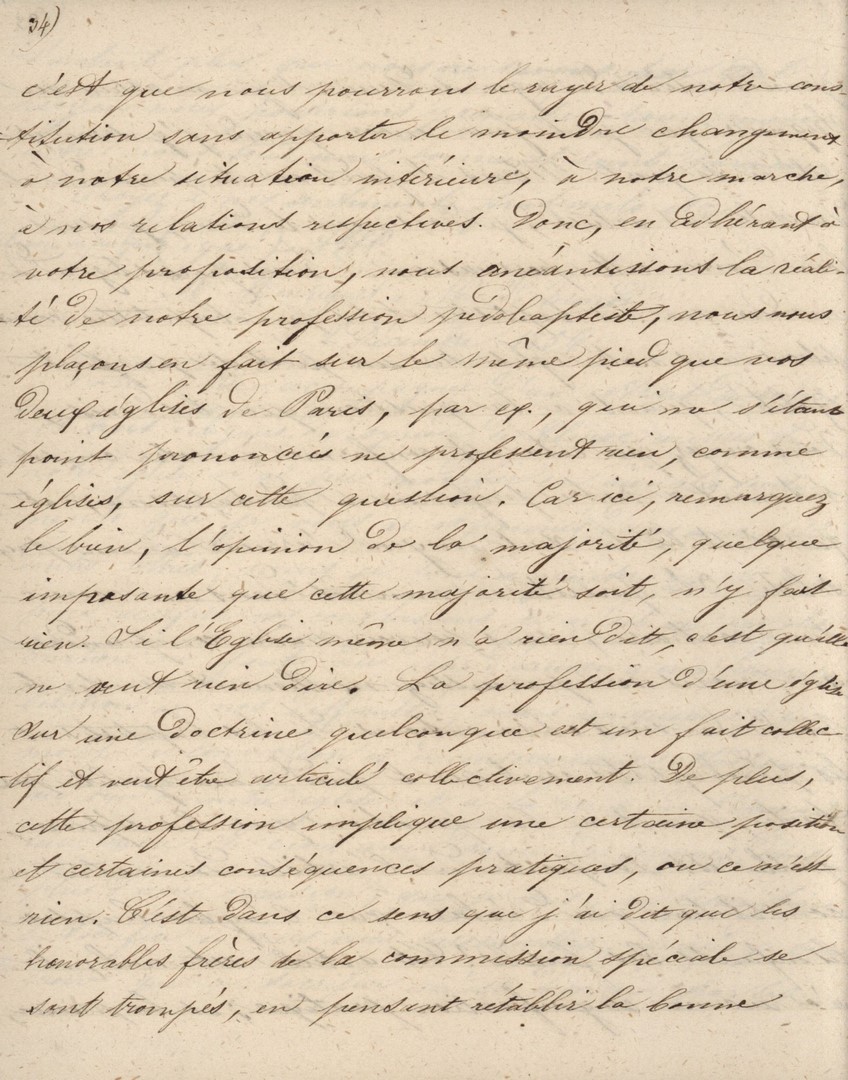 34)
c'est que nous pourrons le rayer de notre cons-
-titution sans apporter le moindre changement
à notre situation intérieure, à notre marche,
à nos relations respectives. Donc, en adhérant à
votre proposition, nous anéantissons la réali-
-té de notre profession pédobaptiste, nous nous
plaçons en fait sur le même pied que vos
deux églises de Paris, par ex., qui ne s'étant
point prononcées ne professent rien, comme
églises, sur cette question. Car ici, remarquez
le bien, l'opinion de la majorité, quelque
imposante que cette majorité soit, n'y fait
rien. Si l'Eglise même n'a rien dit, c'est qu'elle
ne veut rien dire. La profession d'une église
sur une doctrine quelconque est un fait collec-
-tif et veut être articulé collectivement. De plus,
cette profession implique une certaine position
et certaines conséquences pratiques, ou ce n'est
rien. C'est dans ce sens que j'ai dit que les
honorables frères de la commission spéciale se
sont trompés, en pensant rétablir la bonne